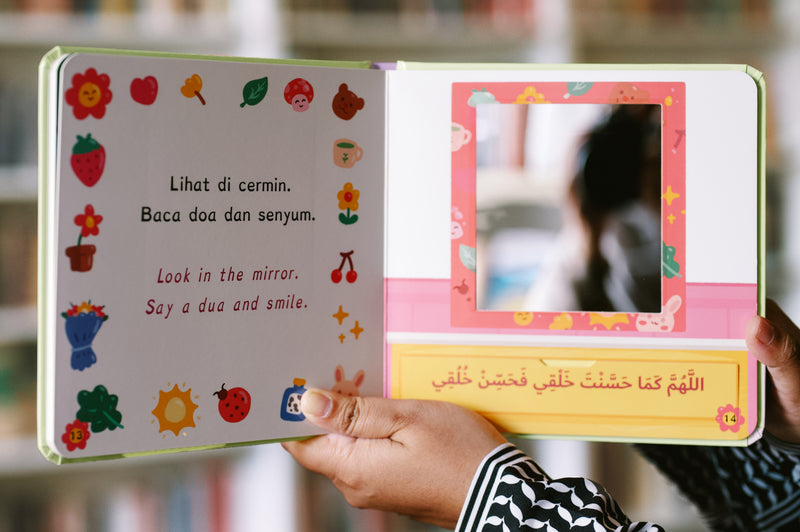 Lihat di cermin.
Baca doa dan senyum.
Look in the mirror.
Say a dua and smile.
13
اللَّهُمَّ كَمَا حَسَّنْتَ خَلْقِي فَحَسِّنْ خُلُقِي
14